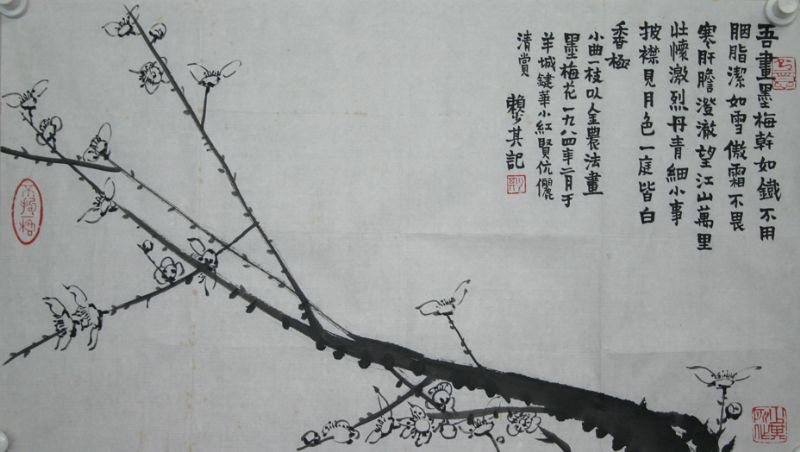 吾畫墨梅幹如鐵不用
胭脂潔如雪傲霜不畏
寒肝膽澄澈望江山萬里
壯懷激烈丹青細小事
披襟見月色一庭皆白
香極
小曲一枝以金農法畫
墨梅花一九八四年二月于
羊城鍵華小紅賢伉儷
清賞
賴少其記